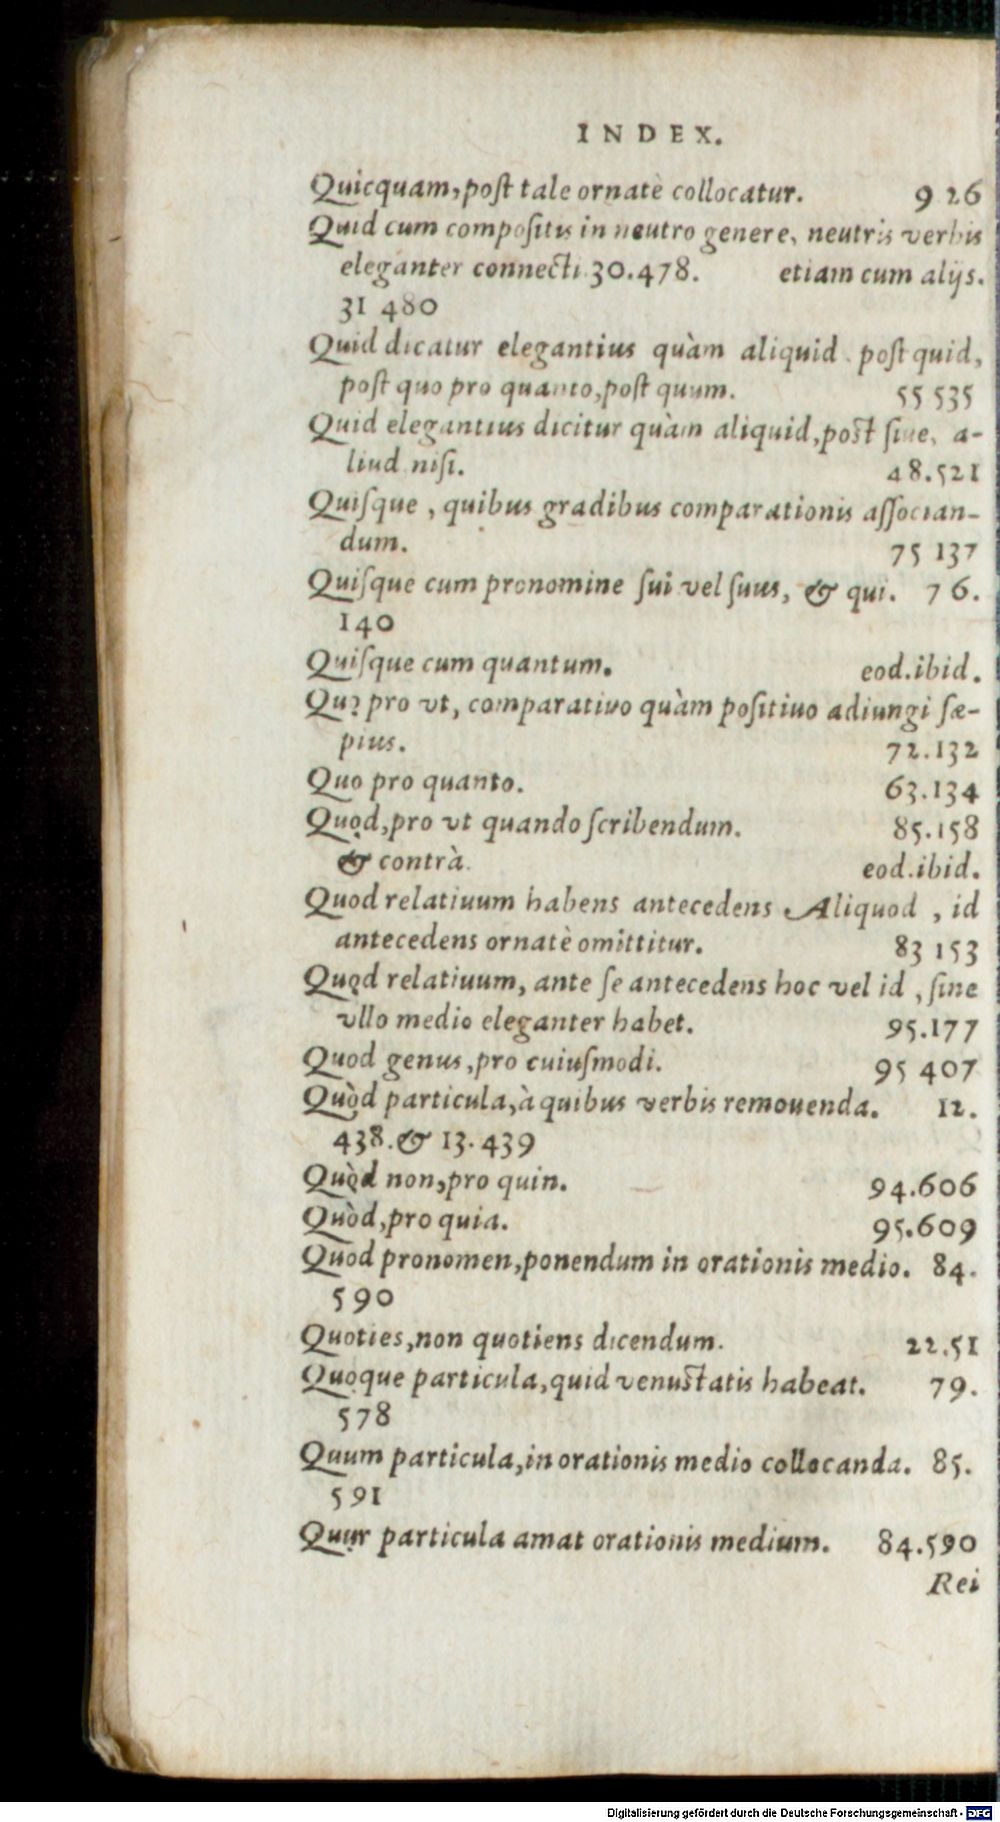 INDEX.
Quicquam, poſt tale ornatè collocatur. 9 26
Quid cum compoſitis in neutro genere, neutris verbis
eleganter connecti 30.478. etiam cum alijs.
31 480
Quid dicatur elegantius quàm aliquid poſt quid,
poſt quo pro quanto, poſt quum. 55 535
Quid elegantius dicitur quàm aliquid, poſt ſiue, a-
liud niſi. 48.521
Quiſque, quibus gradibus comparationis aſſocian-
dum. 75 137
Quiſque cum pronomine ſui vel ſuus, & qui. 76.
140
Quiſque cum quantum. eod.ibid.
Quꝫ pro vt, comparatiuo quàm poſitiuo adiungi ſæ-
pius. 72.132
Quo pro quanto. 63.134
Quod, pro vt quando ſcribendum. 85.158
& contrà. eod.ibid.
Quod relatiuum habens antecedens Aliquod, id
antecedens ornatè omittitur. 83 153
Quod relatiuum, ante ſe antecedens hoc vel id, ſine
vllo medio eleganter habet. 95.177
Quod genus, pro cuiuſmodi. 95 407
Quòd particula, à quibus verbis remouenda. 12.
438. & 13. 439
Quòd non, pro quin. 94.606
Quòd, pro quia. 95.609
Quod pronomen, ponendum in orationis medio. 84.
590
Quoties, non quotiens dicendum. 22.51
Quoque particula, quid venuſtatis habeat. 79.
578
Quum particula, in orationis medio collocanda. 85.
591
Quur particula amat orationis medium. 84.590
Rei
Digitalisierung gefördert durch die Deutsche Forschungsgemeinschaft - DFG